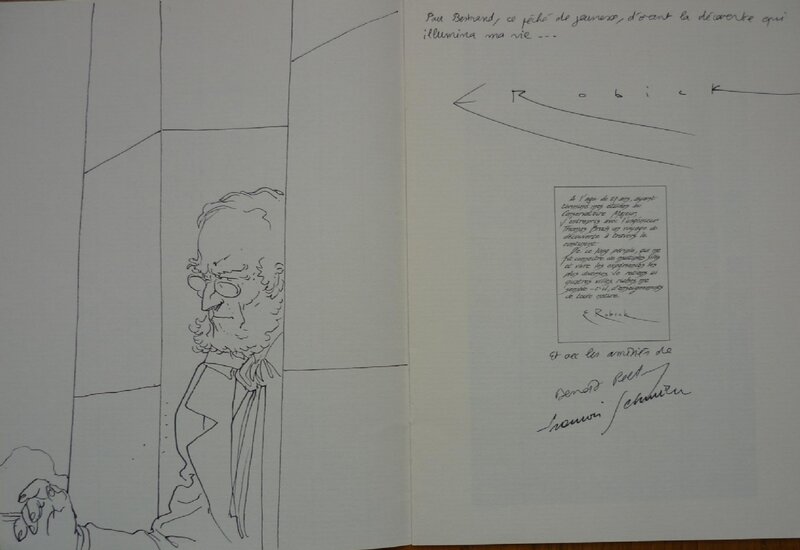 Pour Bertrand, ce péché de jeunesse, d'avant la découverte qui
illumina ma vie...
E Robick
A l'age de 27 ans, ayant
terminé mes études au
Conservatoire Majeur,
j'entrepris avec l'ingénieur
Thomas Broch un voyage de
découverte à travers le
continent.
De ce long périple, qui me
fit connaître de multiples
et vivre les expériences les
plus diverses, je retiens ici
quatre villes riches me
semble-t-il, d'enseignements
de toute nature.
E. Robick
Et avec les amitiés de
Benoît Peet
François Schuiten